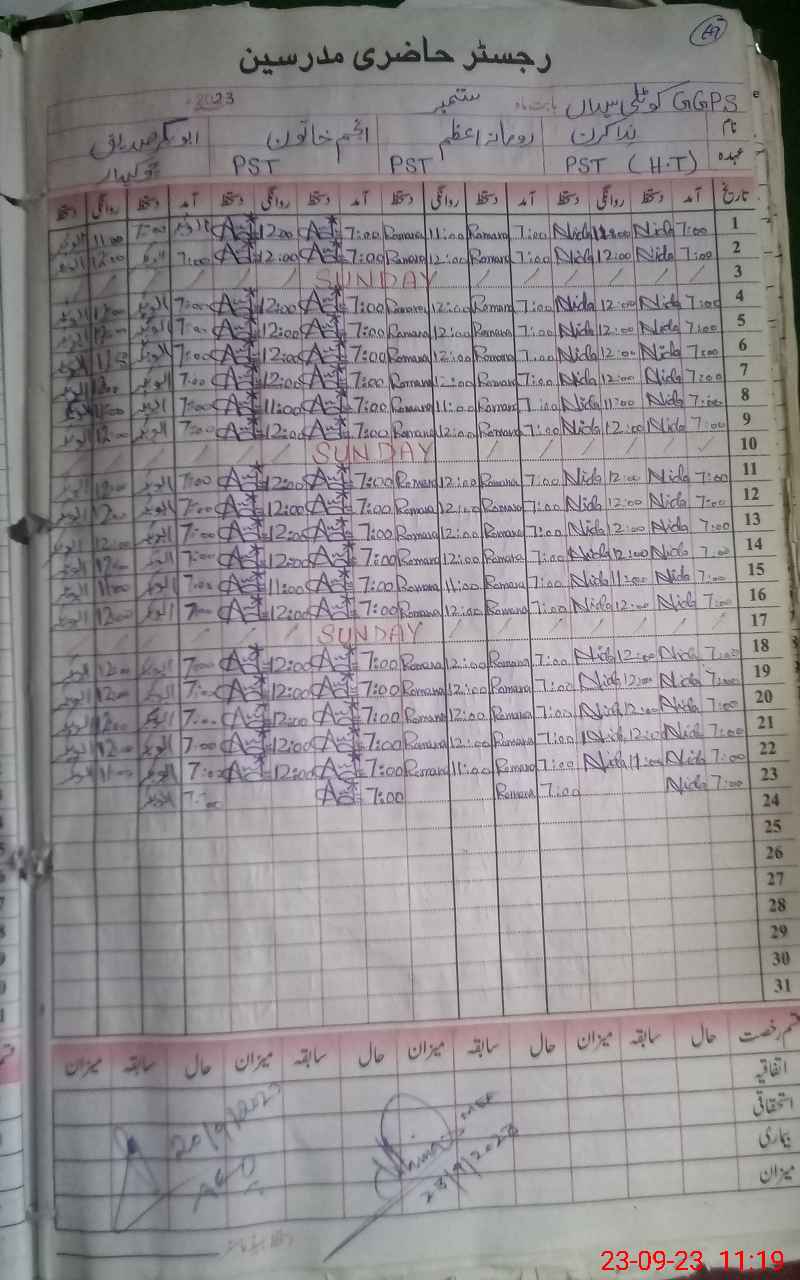 49
رجسٹر حاضری مدرسین
GGPS کوٹلی سیداں بابت ماہ ستمبر 2023
نام ندا کرن رومانہ اعظم انجم خاتون ابوبکر صدیق
عہدہ PST (H.T) PST PST چوکیدار
تاریخ آمد دستخط روانگی دستخط آمد دستخط روانگی دستخط آمد دستخط روانگی دستخط آمد دستخط روانگی دستخط
1 7:00 Nida 11:00 Nida 7:00 Romana 11:00 Romana 7:00 12:00 7:00 11:00
2 7:00 Nida 12:00 Nida 7:00 Romana 12:00 Romana 7:00 12:00 7:00 12:00
3 SUNDAY
4 7:00 Nida 12:00 Nida 7:00 Romana 12:00 Romana 7:00 12:00 7:00 12:00
5 7:00 Nida 12:00 Nida 7:00 Romana 12:00 Romana 7:00 12:00 7:00 12:00
6 7:00 Nida 12:00 Nida 7:00 Romana 12:00 Romana 7:00 12:00 7:00
7 7:00 Nida 12:00 Nida 7:00 Romana 12:00 Romana 7:00 12:00 7:00 12:00
8 7:00 Nida 11:00 Nida 7:00 Romana 11:00 Romana 7:00 11:00 7:00
9 7:00 Nida 12:00 Nida 7:00 Romana 12:00 Romana 7:00 12:00 7:00 12:00
10 SUNDAY
11 7:00 Nida 12:00 Nida 7:00 Romana 12:00 Romana 7:00 12:00 7:00 12:00
12 7:00 Nida 12:00 Nida 7:00 Romana 12:00 Romana 7:00 12:00 7:00 12:00
13 7:00 Nida 12:00 Nida 7:00 Romana 12:00 Romana 7:00 12:00 7:00 12:00
14 7:00 Nida 12:00 Nida 7:00 Romana 12:00 Romana 7:00 12:00 7:00 12:00
15 7:00 Nida 11:00 Nida 7:00 Romana 11:00 Romana 7:00 11:00 7:00 11:00
16 7:00 Nida 12:00 Nida 7:00 Romana 12:00 Romana 7:00 12:00 7:00 12:00
17 SUNDAY
18 7:00 Nida 12:00 Nida 7:00 Romana 12:00 Romana 7:00 12:00 7:00 12:00
19 7:00 Nida 12:00 Nida 7:00 Romana 12:00 Romana 7:00 12:00 7:00 12:00
20 7:00 Nida 12:00 Nida 7:00 Romana 12:00 Romana 7:00 12:00 7:00 12:00
21 7:00 Nida 12:00 Nida 7:00 Romana 12:00 Romana 7:00 12:00 7:00 12:00
22 7:00 Nida 11:00 Nida 7:00 Romana 11:00 Romana 7:00 12:00 7:00 11:00
23 7:00 Nida 7:00 Romana 7:00 7:00
24
25
26
27
28
29
30
31
قسم رخصت حال سابقہ میزان حال سابقہ میزان حال سابقہ میزان حال سابقہ میزان
اتفاقیہ
استحقاقی
بیماری
میزان
20/9/2023
AEO
MEA
23/9/2023
23-09-23 11:19